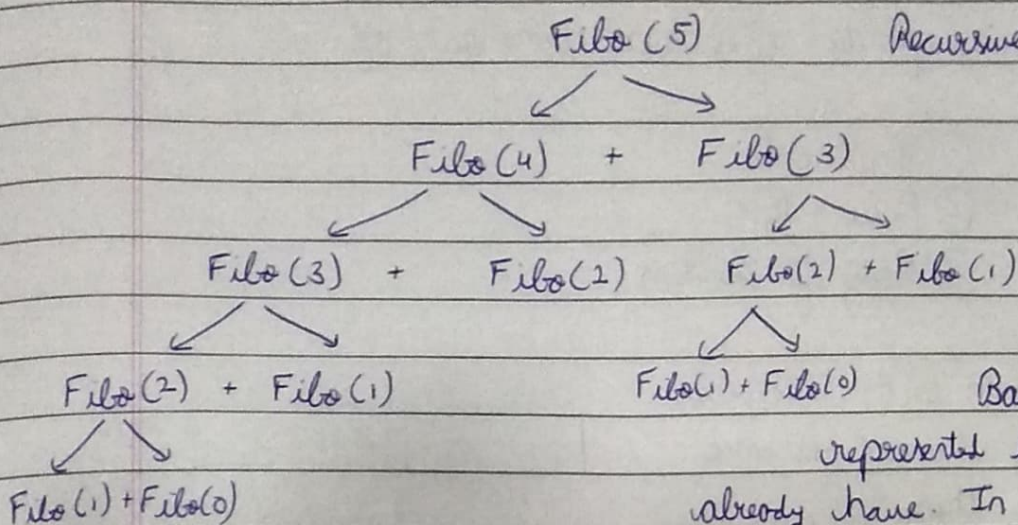 Fibo (5) Recursive
Fibo (4) + Fibo (3)
Fibo (3) + Fibo (2) Fibo(2) + Fibo (1)
Fibo (2) + Fibo (1) Fibo(1) + Fibo(0) Ba
represented
Fibo (1) + Fibo(0) already have. In